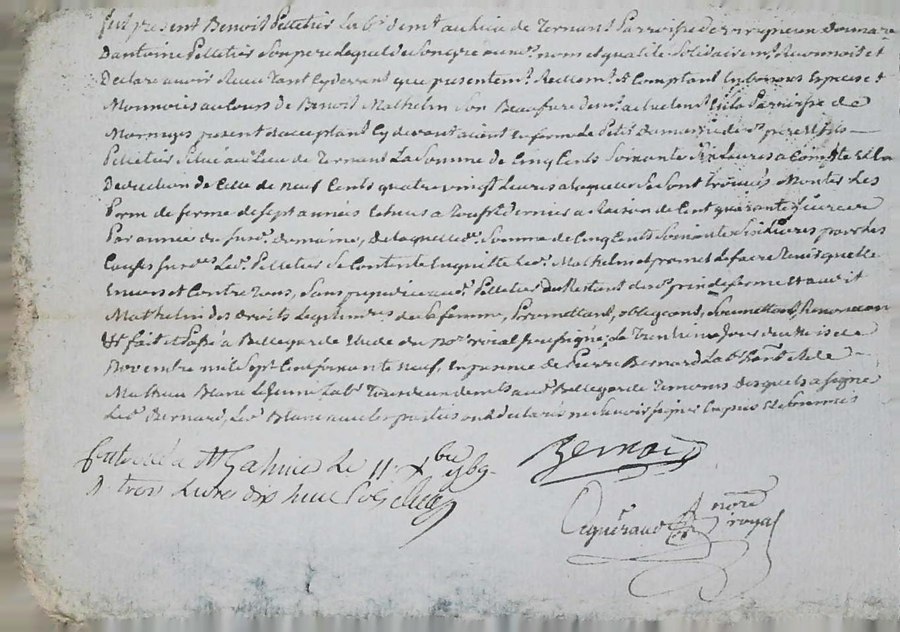 fut présent Benoit Pelletier Lab.r dem.t au lieu de Ternant Parroisse de
D'antoine Pelletier Son pere Lequel de Son gre au n.t nom et qualité Solidairem.t Reconnoit et
Declare avoir Receu Tant Cydevant que presentem.t Reellem.t et Comptant En bonnes Especes et
Monnois au Cours de Benoit Mathelin Son Beaufrere dem.t actuelem.t En la Parroisse de
present et acceptant Cy devant En ferme Le Petit Domaine de pere et fils
Pelletier Situé au Lieu de Ternant La Somme de Cinq Cents Soixante Six Livres a Compte et En
Deduction de Celle de neuf Cents quatre vingt Livres a laquelle Se Sont trouvés Monter Les
de ferme de Sept années Echues a a Raison de Cent quarante Livres
Par année du Sus.t domaine, De laquelle de Somme de Cinq Cents Soixante Six Livres pour les
Causes Sus.des Led. Pelletier Se Contente En quitte Led. Mathelin et promet Le faire Tenir quitte
Envers et Contre Tous, Sans prejudice aud. Pelletier du Restant du prix de ferme Et aud.it
Mathelin des Droits Legitimaires de Sa femme, Promettant, obligeant, Soumettant, Renonceant
fait et Passé à Bellegarde Etude du no.re roial Soussigné, Le Trentieme Jour du Mois de
Novembre mil Sept Cent Soixante neuf, En presence de Pierre Bernard Lab.r et de
Mathieu Blanc Le Jeune Lab.r Tous deux dem.ts aud. Bellegarde Temoins desquels a Signé
Led. Bernard, Led. Blanc avec les parties ont declaré ne Savoir Signer Enquis Et Sommés
Controllé a St Galmier Le 11 Xbre 1769
R. trois Livres dix huit Sols
Bernard
nore
royal